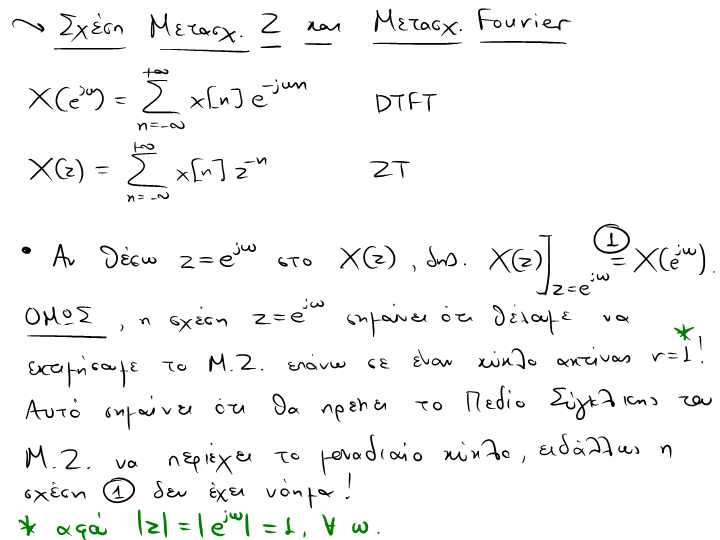 ~> Σχέση Μετασχ. Z και Μετασχ. Fourier
X(e^{jω}) = \sum_{n=-∞}^{+∞} x[n] e^{-jωn} DTFT
X(z) = \sum_{n=-∞}^{+∞} x[n] z^{-n} ZT
• Αν θέσω z = e^{jω} στο X(z), δηλ. X(z)]_{z=e^{jω}} =^{①} X(e^{jω}).
ΟΜΩΣ, η σχέση z=e^{jω} σημαίνει ότι θέλαμε να
εκτιμήσαμε το Μ.Ζ. επάνω σε έναν κύκλο ακτίνας r=1*!
Αυτό σημαίνει ότι θα πρέπει το Πεδίο Σύγκλισης του
Μ.Ζ. να περιέχει το μοναδιαίο κύκλο, ειδάλλως η
σχέση ① δεν έχει νόημα!
* αφού |z| = |e^{jω}| = 1, ∀ ω.